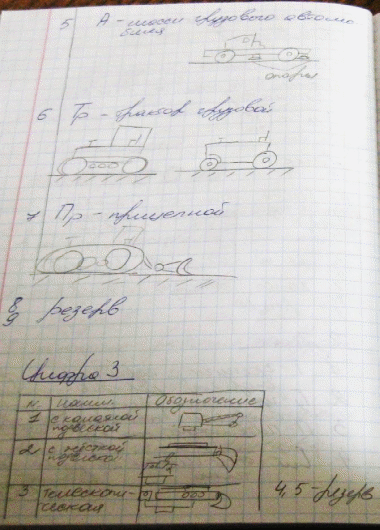 5 А - шасси грузового автомо
биля
опоры
6 Тр - трактор грузовой
7 Пр - прицепной
8
9 резерв
Цифра 3
N наим. Обозначение
1 с канатной
подвеской
2 с жёсткой
подвеской
3 телескопи-
ческая
4,5 - резерв